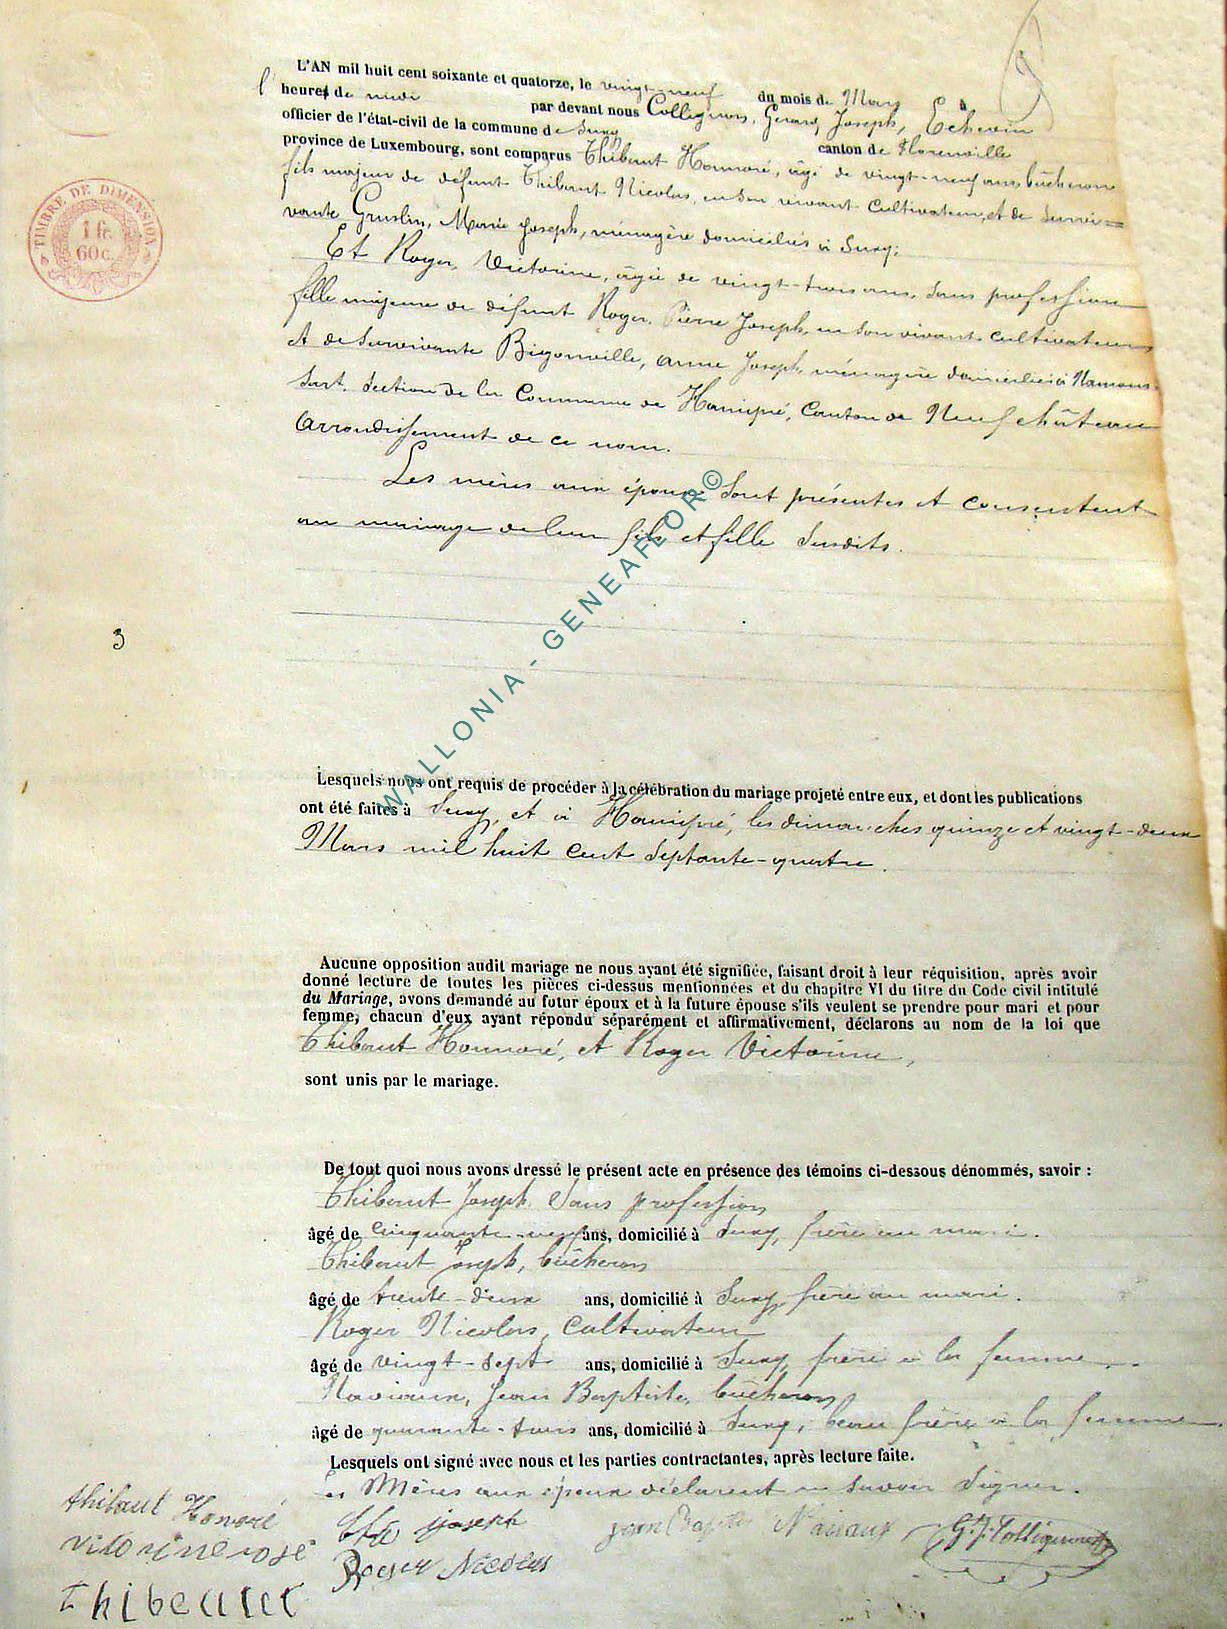 L'AN mil huit cent soixante et quatorze, le vingt-neuf du mois de Mars
l' heures de midi par devant nous Collignon, Gerard, Joseph, Echevin
officier de l'état-civil de la commune de Suxy canton de Florenville
province de Luxembourg, sont comparus Thibaut Honnoré, âgé de vingt-neuf ans, bûcheron
fils majeur de défunt Thibaut Nicolas, en son vivant cultivateur, et de survi=
vante Gruslin, Marie Joseph, ménagère domiciliés à Suxy;
Et Roger, Victorine, âgée de vingt-trois ans, sans profession
fille majeure de défunt Roger, Pierre Joseph, en son vivant cultivateur
et de survivante Bigonville, Anne Joseph, ménagère domiciliés à Namous-
sart, Section de la Commune de Hamipré, Canton de Neufchâteau
arrondissement de ce nom.
Les mères aux époux sont présentes et consentent
au mariage de leur fils et fille susdits.
3
TIMBRE DE DIMENSION
1 fr.
60 c.
WALLONIA - GENEAFLOR©
Lesquels nous ont requis de procéder à la célébration du mariage projeté entre eux, et dont les publications
ont été faites à Suxy, et à Hamipré, les dimanches quinze et vingt-deux
Mars mil huit cent septante-quatre.
Aucune opposition audit mariage ne nous ayant été signifiée, faisant droit à leur réquisition, après avoir
donné lecture de toutes les pièces ci-dessus mentionnées et du chapitre VI du titre du Code civil intitulé
du Mariage, avons demandé au futur époux et à la future épouse s'ils veulent se prendre pour mari et pour
femme, chacun d'eux ayant répondu séparément et affirmativement, déclarons au nom de la loi que
Thibaut Honnoré, et Roger Victorine,
sont unis par le mariage.
De tout quoi nous avons dressé le présent acte en présence des témoins ci-dessous dénommés, savoir :
Thibaut Joseph, sans profession
âgé de cinquante-neuf ans, domicilié à Suxy, frère au mari.
Thibaut Joseph, bûcheron
âgé de trente-deux ans, domicilié à Suxy, frère au mari.
Roger Nicolas, cultivateur
âgé de vingt-sept ans, domicilié à Suxy, frère à la femme.
Naviaux, Jean Baptiste, bûcheron
âgé de quarante-trois ans, domicilié à Suxy, beau frère à la femme
Lesquels ont signé avec nous et les parties contractantes, après lecture faite.
Les Mères aux époux déclarent ne savoir signer.
thibaut Honoré
joseph
jean Baptiste Naviaux
G. J. Collignon
Roger Nicolas